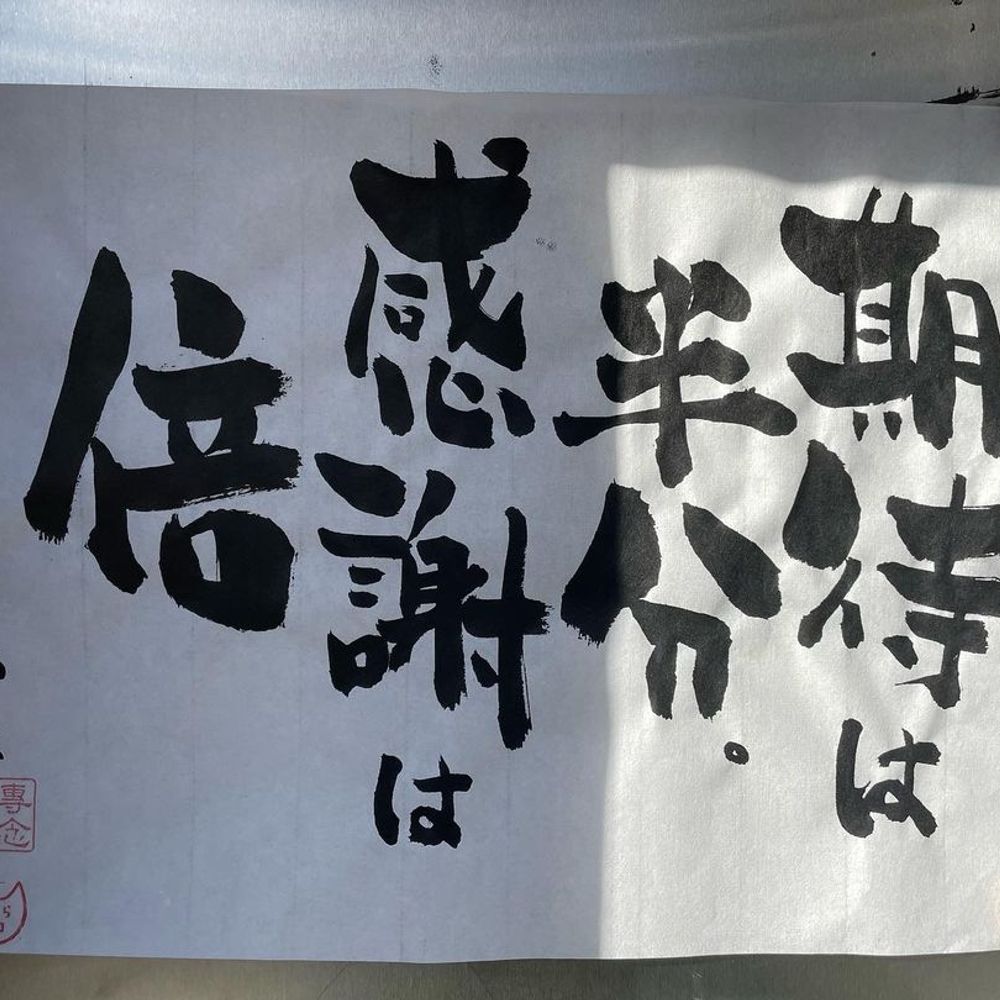 期待は
半分。
感謝は
倍
專念